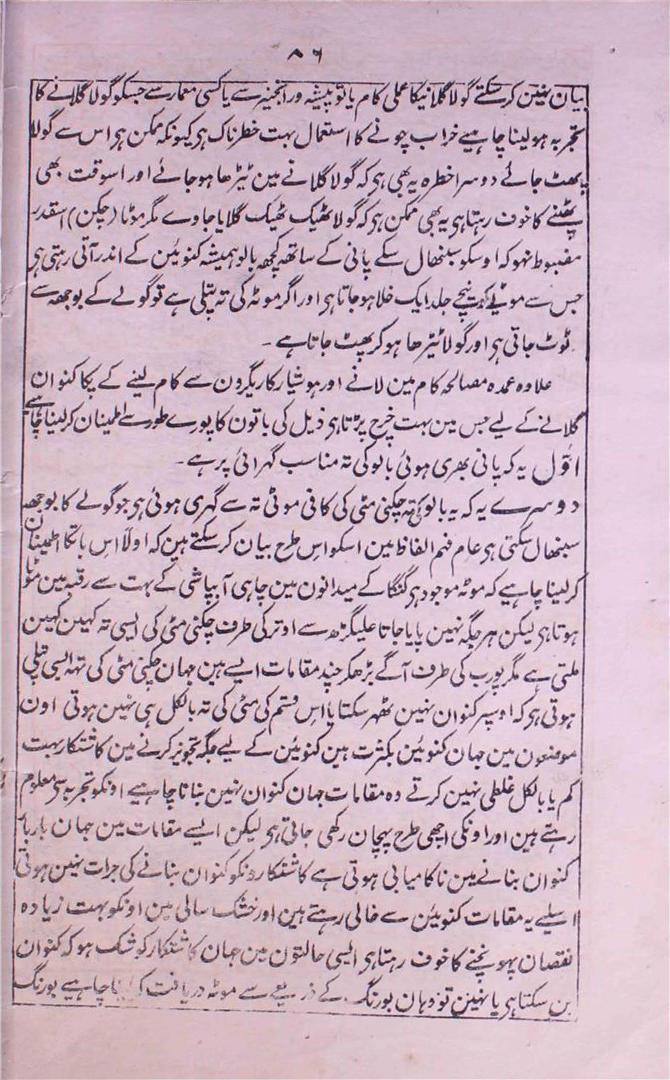 ۸۶
بیان نہین کرسکتے گولا گلانیکا عملی کام یا تو پیشہ ور انجنیر سے یا کسی معمار سے جسکو گولا گلانے کا
تجربہ ہو لینا چاہیے خراب چونے کا استعمال بہت خطرناک ہی کیونکہ ممکن ہی اس سے گولا
پھٹ جائے دوسرا خطرہ یہ بھی ہی کہ گولا گلانے مین ٹیڑھا ہو جائے اور اسوقت بھی
پھٹنے کا خوف رہتا ہی یہ بھی ممکن ہی کہ گولا ٹھیک ٹھیک گلایا جاوے مگر موٹا (چکن) اسقدر
مضبوط نہو کہ اوسکو سنبھال سکے پانی کے ساتھ کچھ بالو ہمیشہ کنوئین کے اندر آتی رہتی ہی
جس سے موٹے کے نیچے جلد ایک خلا ہو جاتا ہی اور اگر موٹہ کی تہ پتلی ہے تو گولے کے بوجھ سے
ٹوٹ جاتی ہی اور گولا ٹیڑھا ہو کر پھٹ جاتا ہے ۔
علاوہ عمدہ مصالحہ کام مین لانے اور ہوشیار کاریگرون سے کام لینے کے پکا کنوان
گلانے کے لیے جس مین بہت خرچ پڑتا ہی ذیل کی باتون کا پورے طور سے اطمینان کر لینا چاہیے
اوّل یہ کہ پانی بھری ہوئی بالو کی تہ مناسب گہرائی پر ہے ۔
دوسرے یہ کہ یہ بالو کی تہ چکنی مٹی کی کافی موٹی تہ سے گہری ہوئی ہی جو گولے کا بوجھ
سنبھال سکتی ہی عام فہم الفاظ مین اسکو اس طرح بیان کرسکتے ہین کہ اولاً اس بات کا اطمینان
کر لینا چاہیے کہ موٹہ موجود ہی گنگا کے میدانون مین چاہی آبپاشی کے بہت سے رقبہ مین موٹا
ہوتا ہی لیکن ہر جگہ نہین پایا جاتا علیگڑھ سے اوتر کی طرف چکنی مٹی کی ایسی تہ کہین کہین
ملتی ہے مگر پورب کی طرف آگے بڑھکر چند مقامات ایسے ہین جہان چکنی مٹی کی تہہ ایسی پتلی
ہوتی ہی کہ اوسپر کنوان نہین ٹھہر سکتا یا اس قسم کی مٹی کی تہ بالکل ہی نہین ہوتی اون
موضعون مین جہان کنوئین بکثرت ہین کنوئین کے لیے جگہ تجویز کرنے مین کاشتکار بہت
کم یا بالکل غلطی نہین کرتے وہ مقامات جہان کنوان نہین بنانا چاہیے اونکو تجربہ سے معلوم
رہتے ہین اور اونکی اچھی طرح پہچان رکھی جاتی ہی لیکن ایسے مقامات مین جہان بار بار
کنوان بنانے مین ناکامیابی ہوتی ہے کاشتکارونکو کنوان بنانے کی جرات نہین ہوتی
اسلیے یہ مقامات کنوئین سے خالی رہتے ہین اور خشک سالی مین اونکو بہت زیادہ
نقصان پہونچنے کا خوف رہتا ہی ایسی حالتون مین جہان کاشتکار کو شک ہو کہ کنوان
بن سکتا ہی یا نہین تو وہان بورنگ کے ذریعے سے موٹہ دریافت کرنا چاہیے بورنگ